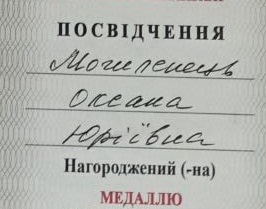 ПОСВІДЧЕННЯ
Могиленець
Оксана
Юріївна
Нагороджений (-на)
МЕДАЛЛЮ